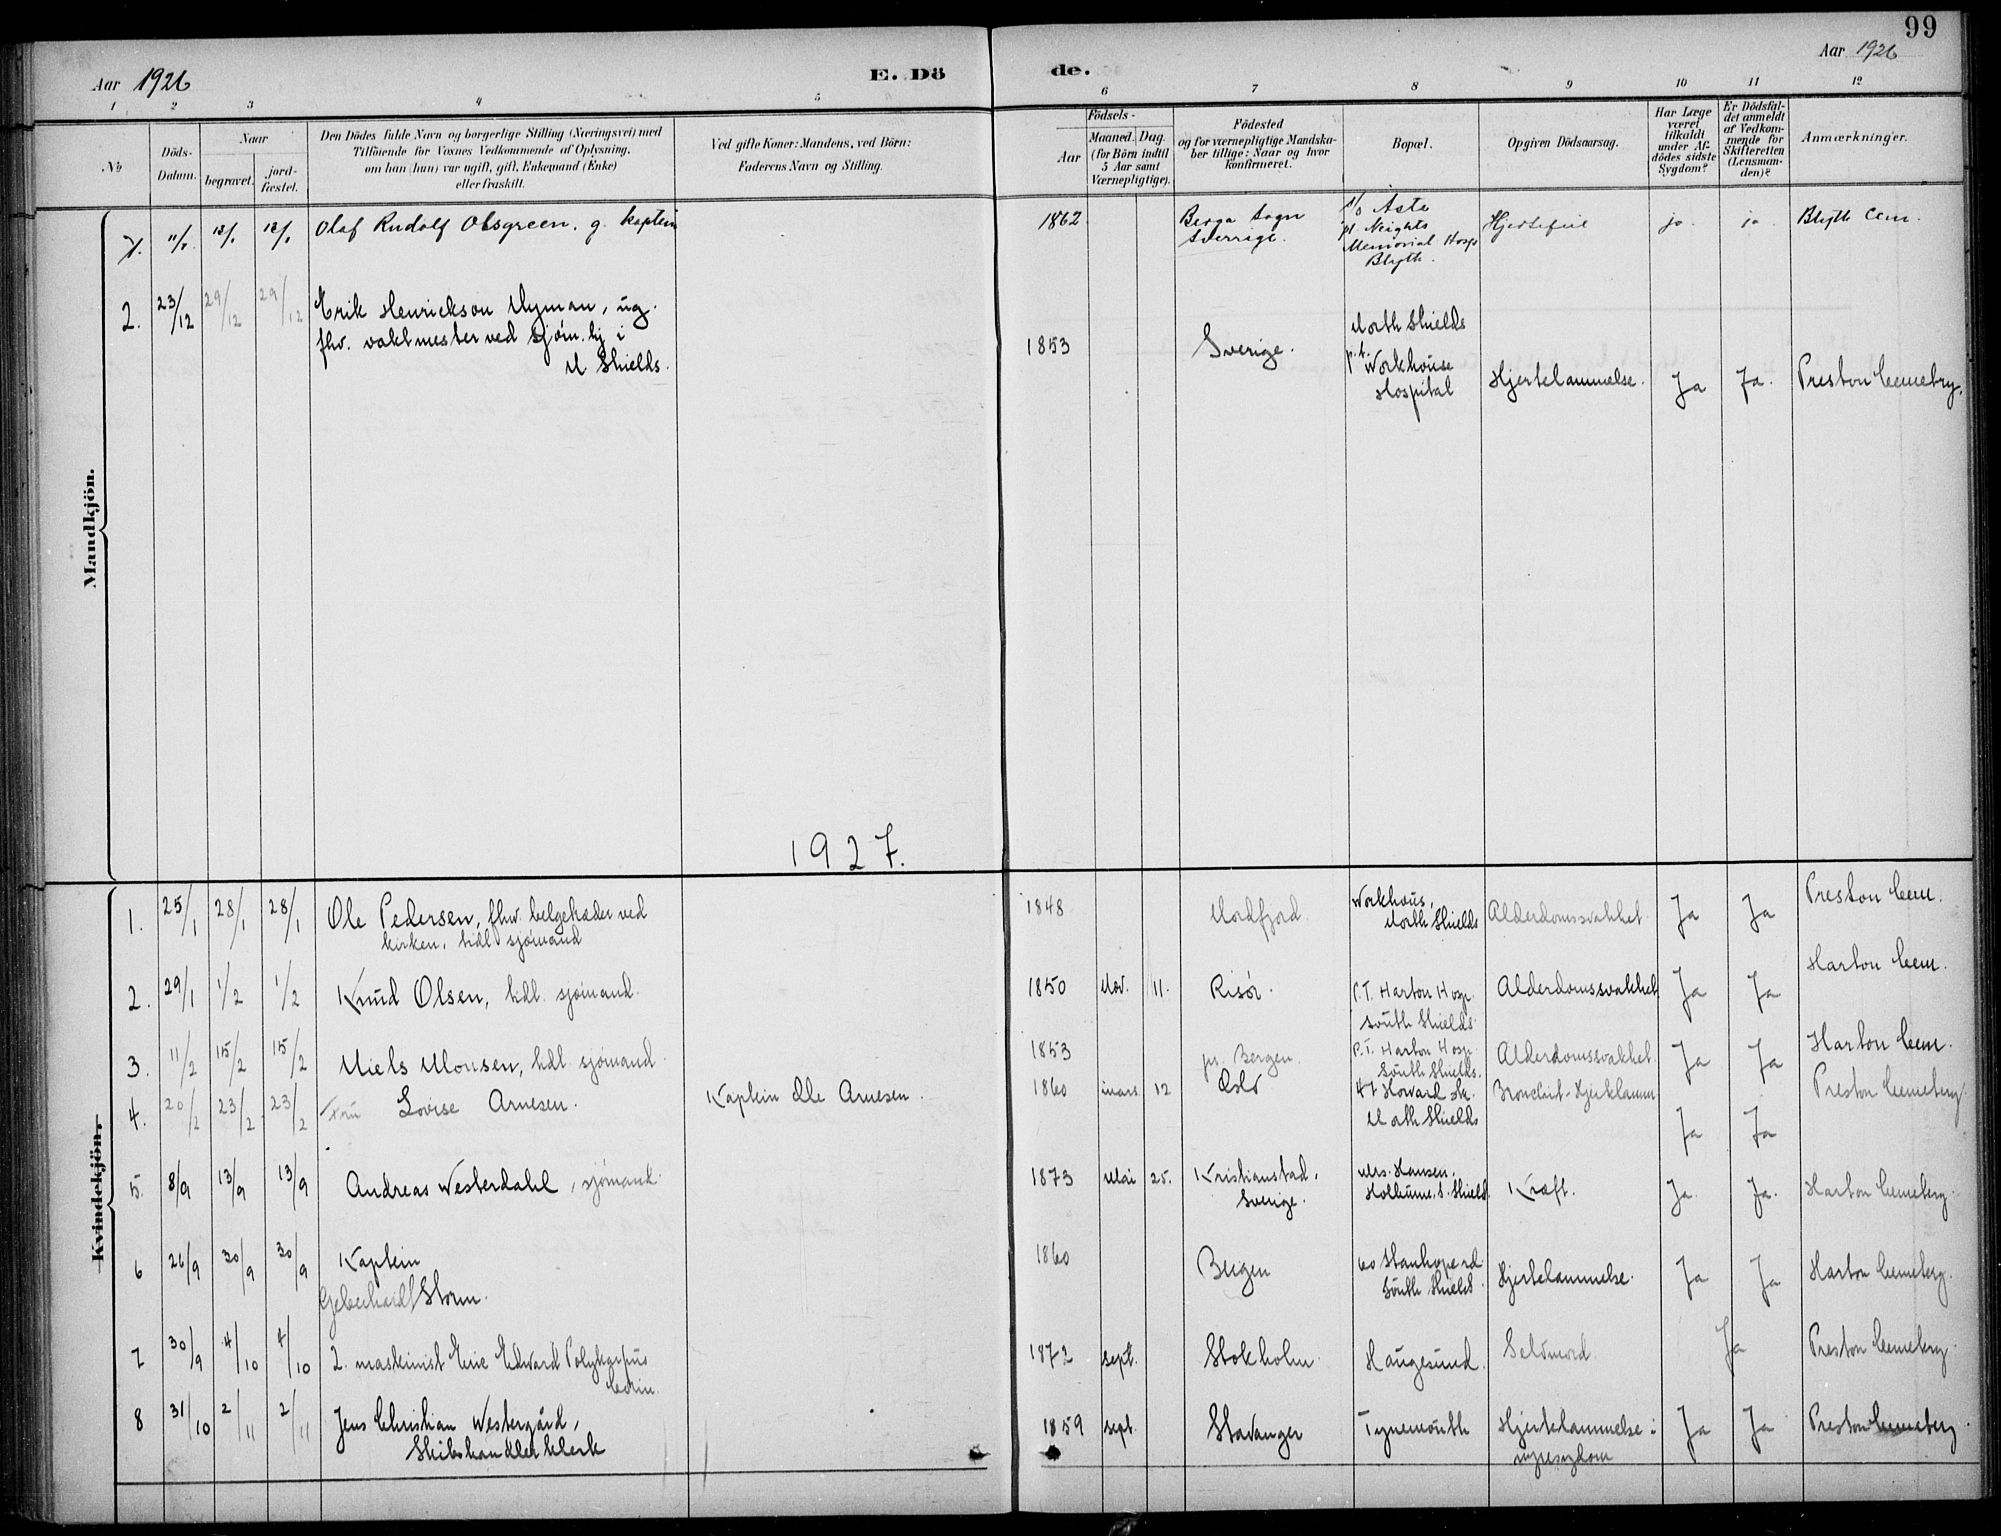 99
Aar 1926
E. Dö
de.
Aar 1926
1 2 3 4 5 6 7 8 9 10 11 12
No
Döds-
Datum.
Naar
begravet.
jord-
fæstet.
Den Dödes fulde Navn og borgerlige Stilling (Næringsvei) med
Tilföiende for Voxnes Vedkommende af Oplysning,
om han (hun) var ugift, gift, Enkemand (Enke)
eller fraskilt.
Ved gifte Koner: Mandens, ved Börn:
Faderens Navn og Stilling.
Födsels-
Aar
Maaned.
Dag.
(for Börn indtil
5 Aar samt
Værnepligtige).
Födested
og for værnepligtige Mandska-
ber tillige: Naar og hvor
konfirmeret.
Bopæl.
Opgiven Dödsaarsag.
Har Læge
været
tilkaldt
under Af-
dödes sidste
Sygdom?
Er Dödsfal-
det anmeldt
af Vedkom-
mende for
Skifteretten
(Lensman-
den)?
Anmærkninger.
Mandkjön.
1. Olaf Rudolf Olsgreen. g. kaptein
1862
Berga Sogn
Sverrige.
Memorial Hosp
Blyth.
Hjertefeil ja. ja. Blyth Cem.
2. 23/12 29/12 29/12 Erik Henrickson Nyman, ug.
fhv. vaktmester ved sjøm. hj i
N Shields.
1853 Sverige.
North Shields
p.t. Workhouse
Hospital
Hjertelammelse. Ja Ja. Preston Cemetery.
1927.
Kvindekjön.
1. 25/1 28/1 28/1 Ole Pedersen, fhv. belgetræder ved
kirken, tidl. sjømand
1848 Nordfjord. Workhous,
North Shields
Alderdomssvakhet Ja Ja Preston Cem.
2. 29/1 1/2 1/2 Knud Olsen, tidl. sjømand.
1850 Nov. 11. Risør. P.T. Harton Hosp.
South Shields.
Alderdomssvakhet Ja Ja Harton Cem.
3. 11/2 15/2 15/2 Niels Monsen, tidl. sjømand.
1853 pr. Bergen. P.T. Harton Hosp.
South Shields.
Alderdomssvakhet. Ja Ja Harton Cem.
4. 20/2 23/2 23/2 Fru Lovise Arnesen. Kaptein Ole Arnesen.
1860 mars 12 Oslo 47 Howard str.
North Shields
Bronchit - Hjertelamm Ja Ja Preston Cemetery.
5. 8/9 13/9 13/9 Andreas Westerdahl, sjømand.
1873 Mai 25. Kristianstad,
Sverige.
Mrs. Hansen.
S. Shield.
Kræft. Ja. Ja. Harton Cemetery.
6 26/9 30/9 30/9 Kaptein
Gebehard Storm.
1860 Bergen 60 Stanhope rd
South Shield.
Hjertelammelse. Ja Ja Harton Cemetery.
7 30/9 4/10 4/10 2. maskinist Eric Edward Polykarpus
1872 sept. Stokholm. Haugesund. Selvmord. Ja Preston Cemetery.
8 31/10 2/11 2/11 Jens Christian Westergård,
Skibshandler klerk
1859 sept. Stavanger Tynemouth Hjertelammelse i
nyresygdom
Ja Ja Preston Cemetery